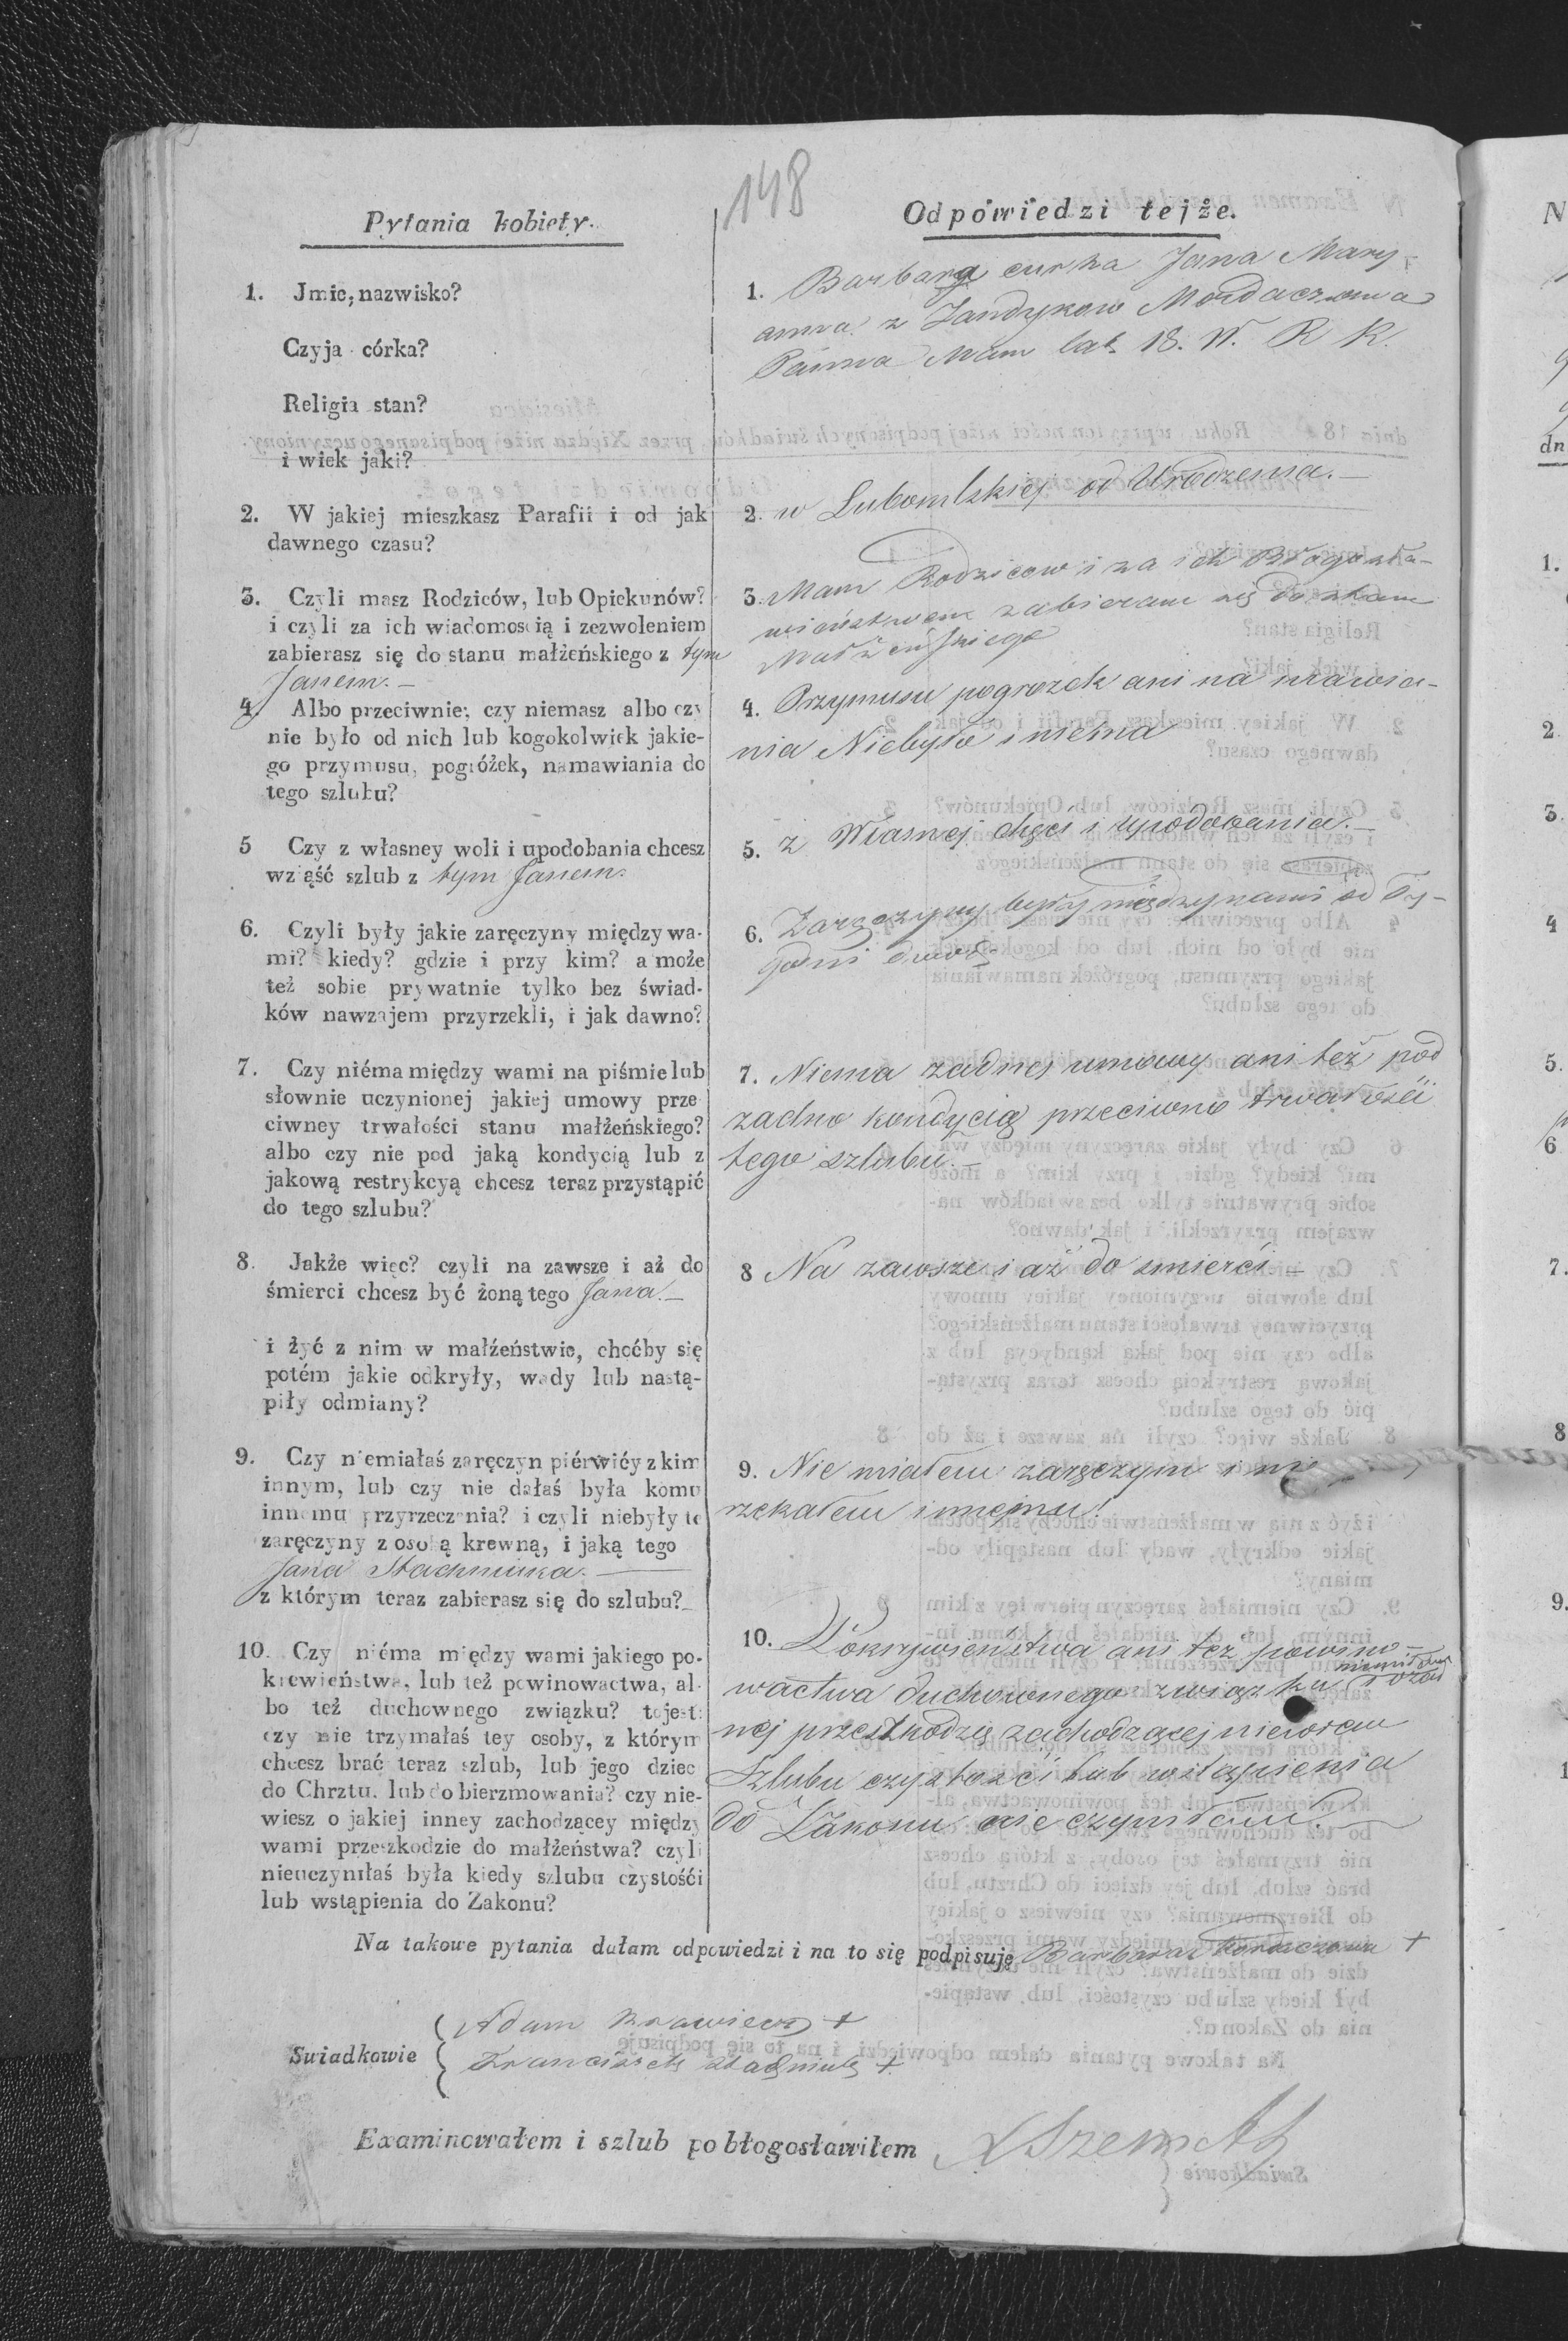 148
Pytania kobiety.
1. Jmie, nazwisko?
Czyja córka?
Religia stan?
i wiek jaki?
2. W jakiej mieszkasz Parafii i od jak
dawnego czasu?
3. Czyli masz Rodziców, lub Opiekunów?
i czyli za ich wiadomością i zezwoleniem
zabierasz się do stanu małżeńskiego z tym
Janem.—
4. Albo przeciwnie; czy niemasz albo czy
nie było od nich lub kogokolwiek jakie-
go przymusu, pogróżek, namawiania do
tego szlubu?
5 Czy z własney woli i upodobania chcesz
wziąść szlub z tym Janem.
6. Czyli były jakie zaręczyny między wa-
mi? kiedy? gdzie i przy kim? a może
też sobie prywatnie tylko bez świad-
ków nawzajem przyrzekli, i jak dawno?
7. Czy niéma między wami na piśmie lub
słownie uczynionej jakiej umowy prze
ciwney trwałości stanu małżeńskiego?
albo czy nie pod jaką kondycią lub z
jakową restrykcyą chcesz teraz przystąpić
do tego szlubu?
8. Jakże więc? czyli na zawsze i aż do
śmierci chcesz być żoną tego Jana.—
i żyć z nim w małżeństwie, choćby się
potém jakie odkryły, wady lub nastą-
piły odmiany?
9. Czy niemiałaś zaręczyn piérwićy z kim
innym, lub czy nie dałaś była komu
innemu przyrzeczenia? i czyli niebyły te
zaręczyny z osobą krewną, i jaką tego
Jana Stachniuka.—
z którym teraz zabierasz się do szlubu?
10. Czy niéma między wami jakiego po-
krewieństwa, lub też powinowactwa, al-
bo też duchownego związku? to jest:
czy nie trzymałaś tey osoby, z którym
chcesz brać teraz szlub, lub jego dziec
do Chrztu, lub do bierzmowania? czy nie-
wiesz o jakiej inney zachodzącey między
wami przeszkodzie do małżeństwa? czyli
nieuczyniłaś była kiedy szlubu czystośći
lub wstąpienia do Zakonu?
Odpowiedzi tejże.
1. Barbara curka Jana Mary-
anna z Jandykow
Panna Mam lat 18. W. R K.
2. w Lubomlskiej od Urodzenia.—
3. Mam Rodzicow i za ich Błogosła-
wieństwem zabieram się do stanu
Małżeńskiego
4. Przymusu pogrożek ani na mawia-
nia Niebyło i niema
5. z Własnej chęci i upodobania.—
6. Zaręczyny były między nami od Ty-
godni dwoch
7. Niema żadnej umowy ani też pod
żadno kondycią przeciwno trwałości
tego szlubu.—
8 Na zawsze i aż do smierci—
9. Nie miałem zaręczyn i nie
rzekałem innejmu!
10. Pokrywieństwa ani tez powino-
wactwa duchownego związku
nej przeszkodzie zachodzącej niewiem
Szlubu czystości lub wstąpienia
do Zakonu nie czyniłam.—
Na takowe pytania dałam odpowiedzi i na to się podpisuję Barbara +
Swiadkowie
Adam Krawiec +
Franciszek Stachniuk +
Examinowałem i szlub pobłogosławiłem